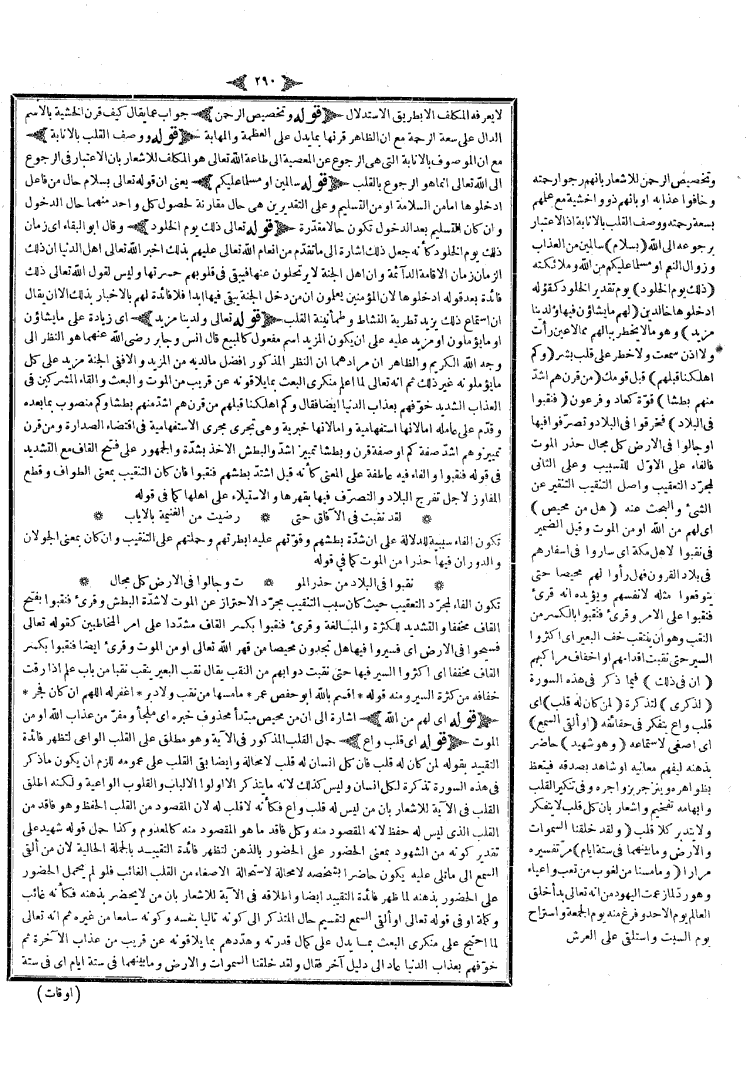 ﴿ ٢٩٠ ﴾
لا يعرفه المكلف الا بطريق الاستدلال ﴿ قوله وتخصيص الرحمن ﴾ جواب عما يقال كيف قرن الخشية بالاسم
الدال على سعة الرحمة مع ان الظاهر قرنها بما يدل على العظمة والمهابة ﴿ قوله ووصف القلب بالانابة ﴾
مع ان الموصوف بالانابة التى هى الرجوع عن المعصية الى طاعة الله تعالى هو المكلف للاشعار بان الاعتبار فى الرجوع
الى الله تعالى انما هو الرجوع بالقلب ﴿ قوله سالمين او مسلما عليكم ﴾ يعنى ان قوله تعالى بسلام حال من فاعل
ادخلوها اما من السلامة او من التسليم وعلى التقديرين هى حال مقارنة لحصول كل واحد منهما حال الدخول
وان كان التسليم بعد الدخول تكون حالا مقدرة ﴿ قوله تعالى ذلك يوم الخلود ﴾ وقال ابو البقاء اى زمان
ذلك يوم الخلود كأنه جعل ذلك اشارة الى ما تقدم من انعام الله تعالى عليهم بذلك اخبر الله تعالى اهل الدنيا ان ذلك
الزمان زمان الاقامة الدائمة وان اهل الجنة لا يرتحلون عنها فيبقى فى قلوبهم حسرتها وليس لقول الله تعالى ذلك
فائدة بعد قوله ادخلوها لان المؤمنين يعلمون ان من دخل الجنة يبقى فيها ابدا فلا فائدة لهم بالاخبار بذلك الا ان يقال
ان استماع ذلك يزيد تطرية النشاط وطمأنينة القلب ﴿ قوله تعالى ولدينا مزيد ﴾ اى زيادة على ما يشاؤن
او ما يؤملون او مزيد عليه على ان يكون المزيد اسم مفعول كالمبيع قال انس وجابر رضى الله عنهما هو النظر الى
وجه الله الكريم والظاهر ان مرادهما ان النظر المذكور افضل ما لديه من المزيد والا فنى الجنة مزيد على كل
ما يؤملونه غير ذلك ثم انه تعالى لما اعلم منكرى البعث بما يلاقونه عن قريب من الموت والبعث والقاء المشركين فى
العذاب الشديد خوفهم بعذاب الدنيا ايضا فقال وكم اهلكنا قبلهم من قرن هم اشد منهم بطشا وكم منصوب بما بعده
وقدم على عامله اما لانها استفهامية واما لانها خبرية وهى تجرى مجرى الاستفهامية فى اقتضاء الصدارة ومن قرن
تمييز وهم اشد صفة كم او صفة قرن وبطشا تمييز اشد والبطش الاخذ بشدة والجمهور على فتح القاف مع التشديد
فى قوله فنقبوا والفاء فيه عاطفة على المعنى كأنه قيل اشتد بطشهم فنقبوا فان كان التنقيب بمعنى الطواف وقطع
المفاوز لاجل تفرج البلاد والتصرف فيها بقهرها والاستيلاء على اهلها كما فى قوله
* لقد نقبت فى الآفاق حتى * رضيت من الغنيمة بالاياب *
تكون الفاء سببية للدلالة على ان شدة بطشهم وقوتهم عليه ابطرتهم وحملتهم على التنقيب وان كان بمعنى الجولان
والدوران فيها حذرا من الموت كما فى قوله
* نقبوا فى البلاد من حذر المو * ت وجالوا فى الارض كل مجال *
تكون الفاء لمجرد التعقيب حيث كان سبب التنقيب مجرد الاحتراز عن الموت لا شدة البطش وقرئ فنقبوا بفتح
القاف مخففا والتشديد للكثرة والمبالغة وقرئ فنقبوا بكسر القاف مشددا على امر المخاطبين كقوله تعالى
فسيحوا فى الارض اى فسيروا فيها هل تجدون محيصا من قهر الله تعالى او من الموت وقرئ ايضا فنقبوا بكسر
القاف مخففا اى اكثروا السير فيها حتى نقبت دوابهم من النقب يقال نقب البعير ينقب نقبا من باب علم اذا رقت
خفافه من كثرة السير ومنه قوله * اقسم بالله ابو حفص عمر * ما مسها من نقب ولا دبر * اغفر له اللهم ان كان فجر *
﴿ قوله اى لهم من الله ﴾ اشارة الى ان من محيص مبتدأ محذوف خبره اى ملجأ ومفر من عذاب الله او من
الموت ﴿ قوله اى قلب واع ﴾ حمل القلب المذكور فى الآية وهو مطلق على القلب الواعى لتظهر فائدة
التقييد بقوله لمن كان له قلب فان كل انسان له قلب لا محالة وايضا بقى القلب على عمومه للزم ان يكون ما ذكر
فى هذه السورة تذكرة لكل انسان وليس كذلك لانه ما يتذكر الا اولوا الالباب والقلوب الواعية ولكنه اطلق
القلب فى الآية للاشعار بان من ليس له قلب واع فكأنه لا قلب له لان المقصود من القلب الحفظ وهو فاقد من
القلب الذى ليس له حفظ لانه المقصود منه وكل فاقد ما هو المقصود منه كالمعدوم وكذا حمل قوله شهيد على
تقدير كونه من الشهود بمعنى الحضور على الحضور بالذهن لتظهر فائدة التقييد بالجملة الحالية لان من ألقى
السمع الى ما تلى عليه يكون حاضرا بشخصه لا محالة لاستحالة الاصغاء من القلب الغائب فلو لم يحمل الحضور
على الحضور بذهنه لما ظهر فائدة التقييد ايضا واطلاقه فى الآية للاشعار بان من لا يحضر بذهنه فكأنه غائب
وكلمة او فى قوله تعالى او ألقى السمع لتقسيم حال المتذكر الى كونه تاليا بنفسه وكونه سامعا من غيره ثم انه تعالى
لما احتج على منكرى البعث بما يدل على كمال قدرته وهددهم بما يلاقونه عن قريب من عذاب الآخرة ثم
خوفهم بعذاب الدنيا عاد الى دليل آخر فقال ولقد خلقنا السموات والارض وما بينهما فى ستة ايام اى فى ستة
( اوقات )
وتخصيص الرحمن للاشعار بانهم رجوا رحمته
وخافوا عذابه او بانهم ذوو الخشية مع علمهم
بسعة رحمته ووصف القلب بالانابة اذ الاعتبار
برجوعه الى الله ( بسلام ) سالمين من العذاب
وزوال النعم او مسلما عليكم من الله وملائكته
( ذلك يوم الخلود ) يوم تقدير الخلود كقوله
ادخلوها خالدين ( لهم ما يشاؤن فيها ولدينا
مزيد ) وهو ما لا يخطر ببالهم مما لا عين رأت
ولا اذن سمعت ولا خطر على قلب بشر ( وكم
اهلكنا قبلهم ) قبل قومك ( من قرن هم اشد
منهم بطشا ) قوة كعاد وفرعون ( فنقبوا
فى البلاد ) فخرقوا فى البلاد وتصرفوا فيها
او جالوا فى الارض كل مجال حذر الموت
فالفاء على الاول للتسبيب وعلى الثانى
لمجرد التعقيب واصل التنقيب التنقير عن
الشئ والبحث عنه ( هل من محيص )
اى لهم من الله او من الموت وقيل الضمير
فى نقبوا لاهل مكة اى ساروا فى اسفارهم
فى بلاد القرون فهل رأوا لهم محيصا حتى
يتوقعوا مثله لانفسهم ويؤيده انه قرئ
فنقبوا على الامر وقرئ فنقبوا بالكسر من
النقب وهو ان ينقب خف البعير اى اكثروا
السير حتى نقبت اقدامهم او اخفاف مراكبهم
( ان فى ذلك ) فيما ذكر فى هذه السورة
( لذكرى ) لتذكرة ( لمن كان له قلب ) اى
قلب واع يتفكر فى حقائقه ( او ألقى السمع )
اى اصغى لاستماعه ( وهو شهيد ) حاضر
بذهنه ليفهم معانيه او شاهد بصدقه فيتعظ
بظواهره وينزجر بزواجره وفى تنكير القلب
وابهامه تفخيم واشعار بان كل قلب لا يتفكر
ولا يتدبر كلا قلب ( ولقد خلقنا السموات
والارض وما بينهما فى ستة ايام ) مر تفسيره
مرارا ( وما مسنا من لغوب ) من تعب واعياء
وهو رد لما زعمت اليهود من انه تعالى بدأ خلق
العالم يوم الاحد وفرغ منه يوم الجمعة واستراح
يوم السبت واستلقى على العرش